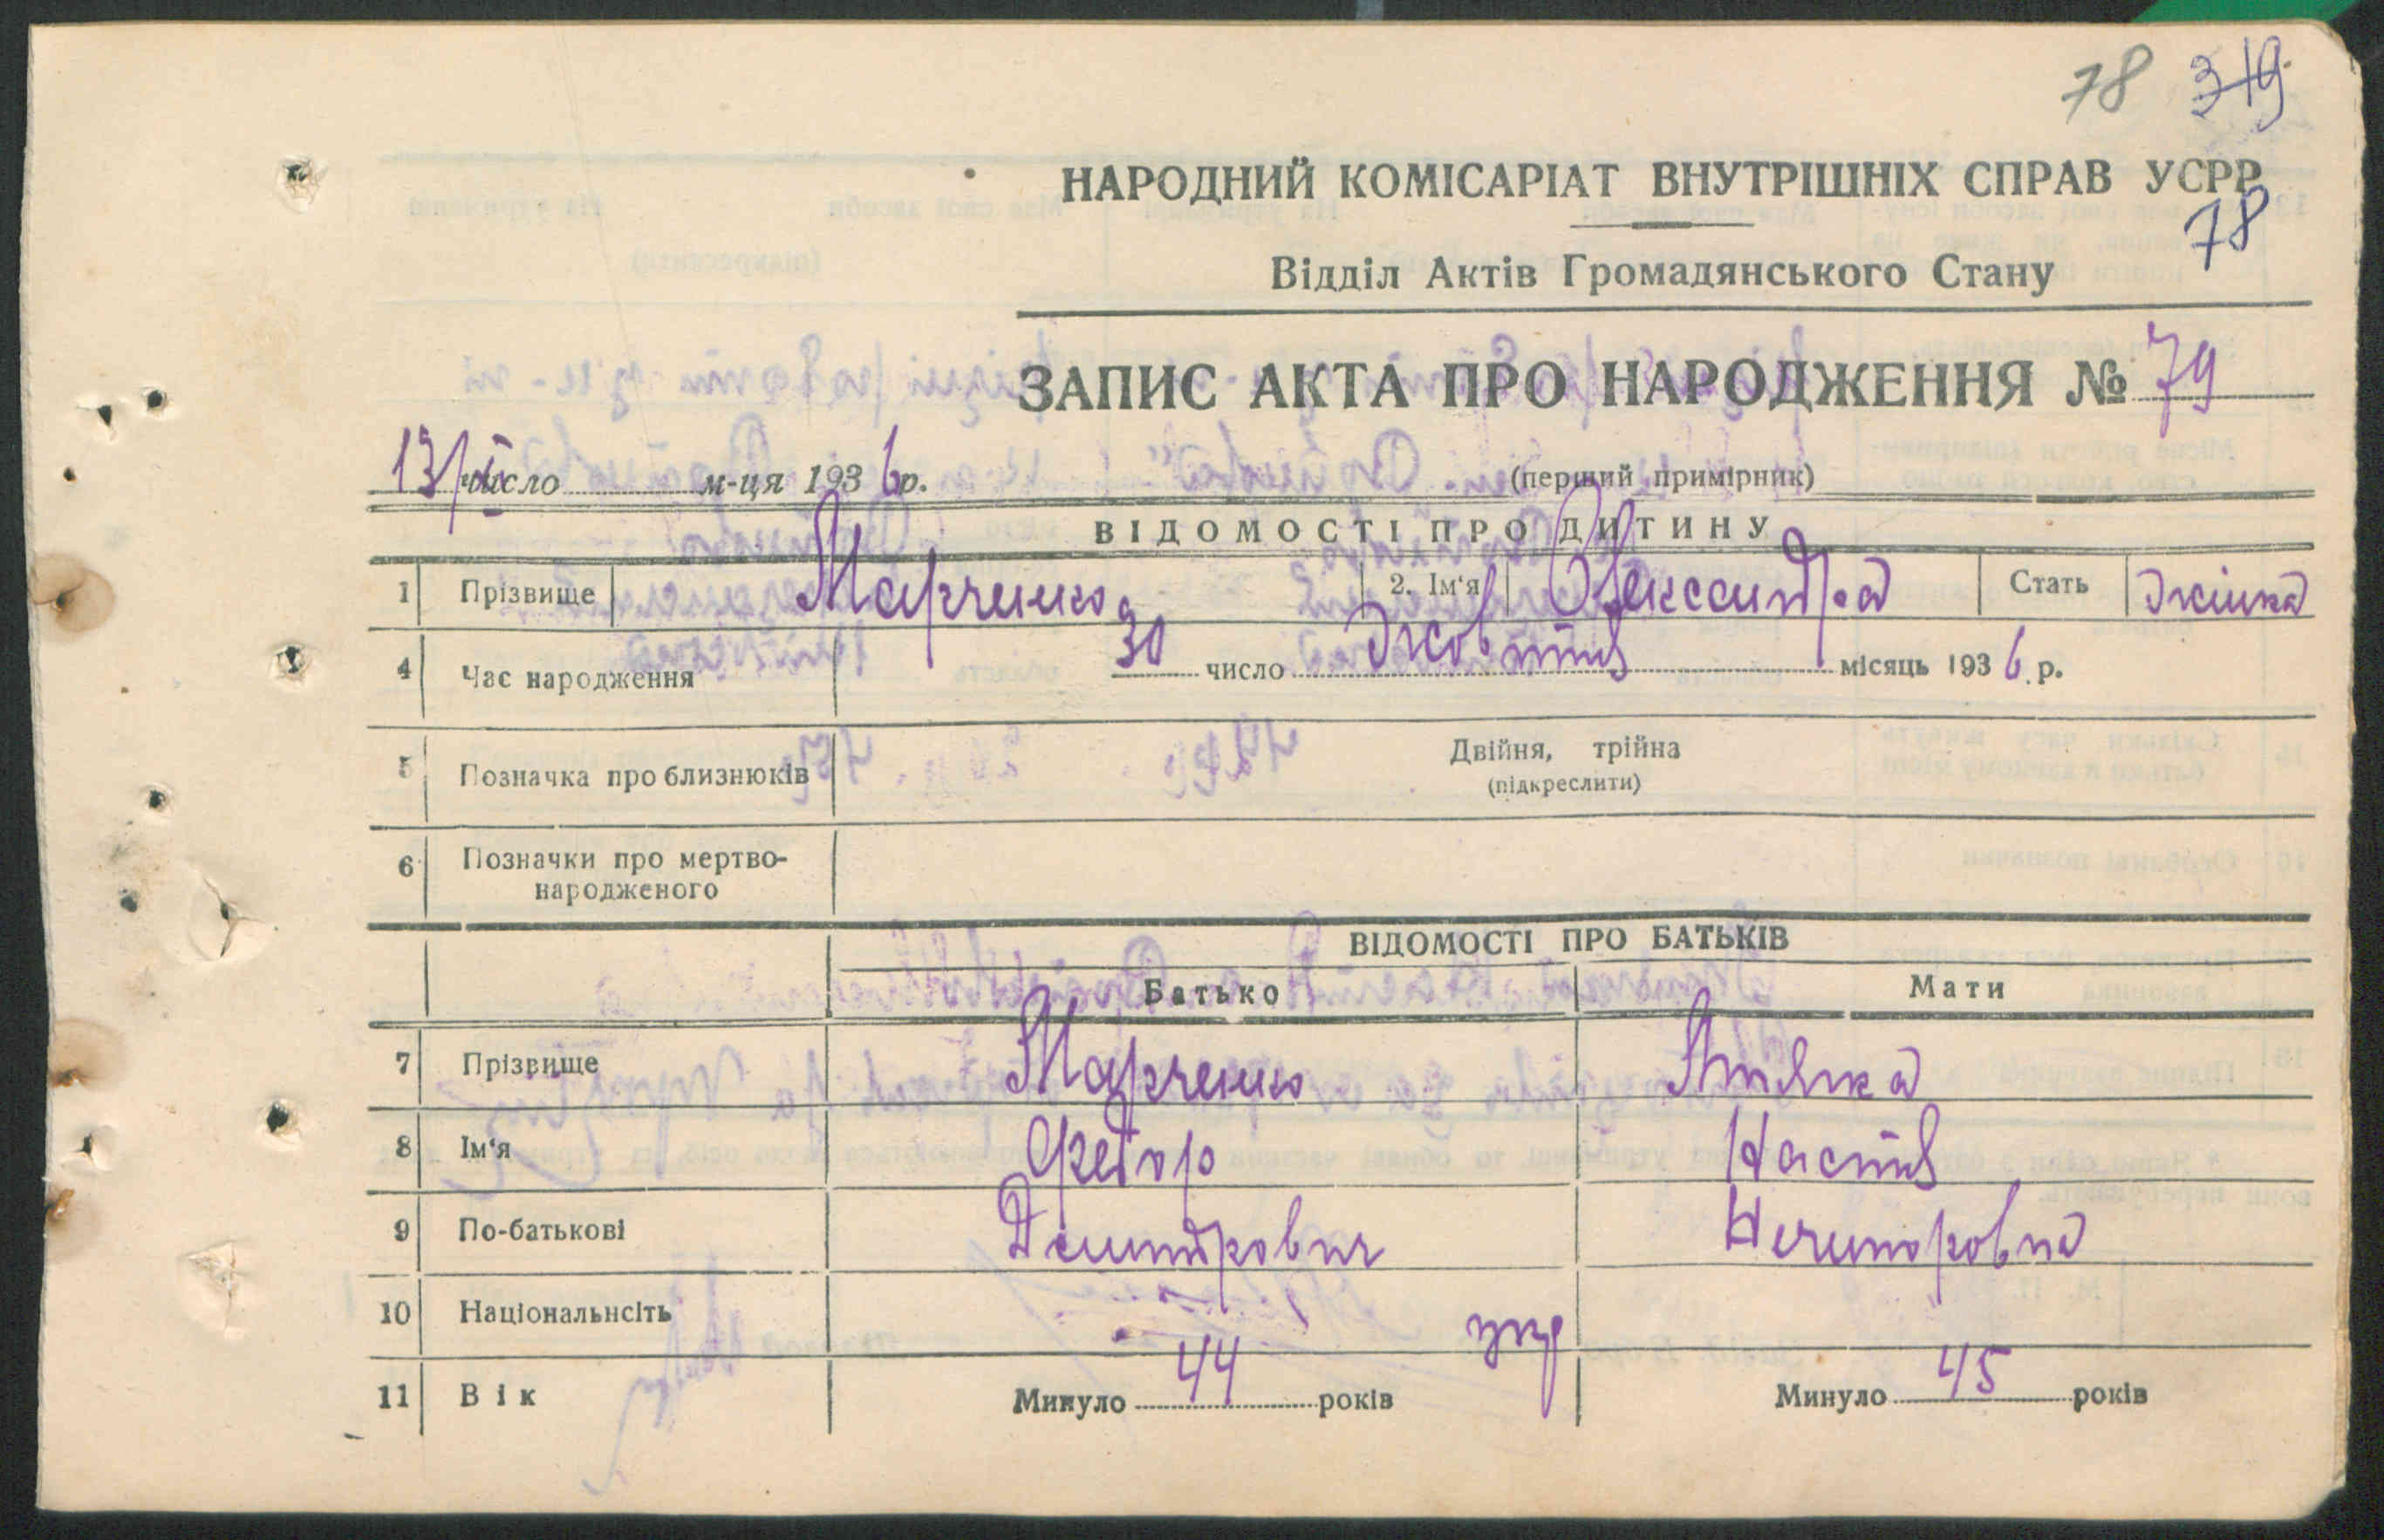 78 319
НАРОДНИЙ КОМІСАРІАТ ВНУТРІШНІХ СПРАВ УСРР
78
Відділ Актів Громадянського Стану
ЗАПИС АКТА ПРО НАРОДЖЕННЯ № 79
13/ число м-ця 1936 р. (перший примірник)
ВІДОМОСТІ ПРО ДИТИНУ
1 Прізвище Марченко 2. Ім'я Олександра Стать жінка
4 Час народження 30 число Жовтня місяць 1936 р.
5 Позначка про близнюків Двійня, трійна
(підкреслити)
6 Позначки про мертво-
народженого
ВІДОМОСТІ ПРО БАТЬКІВ
Батько Мати
7 Прізвище Марченко
8 Ім'я Федор Настя
9 По-батькові Дмитрович Нечипоровна
10 Національнсіть укр
11 Вік Минуло 44 років Минуло 45 років